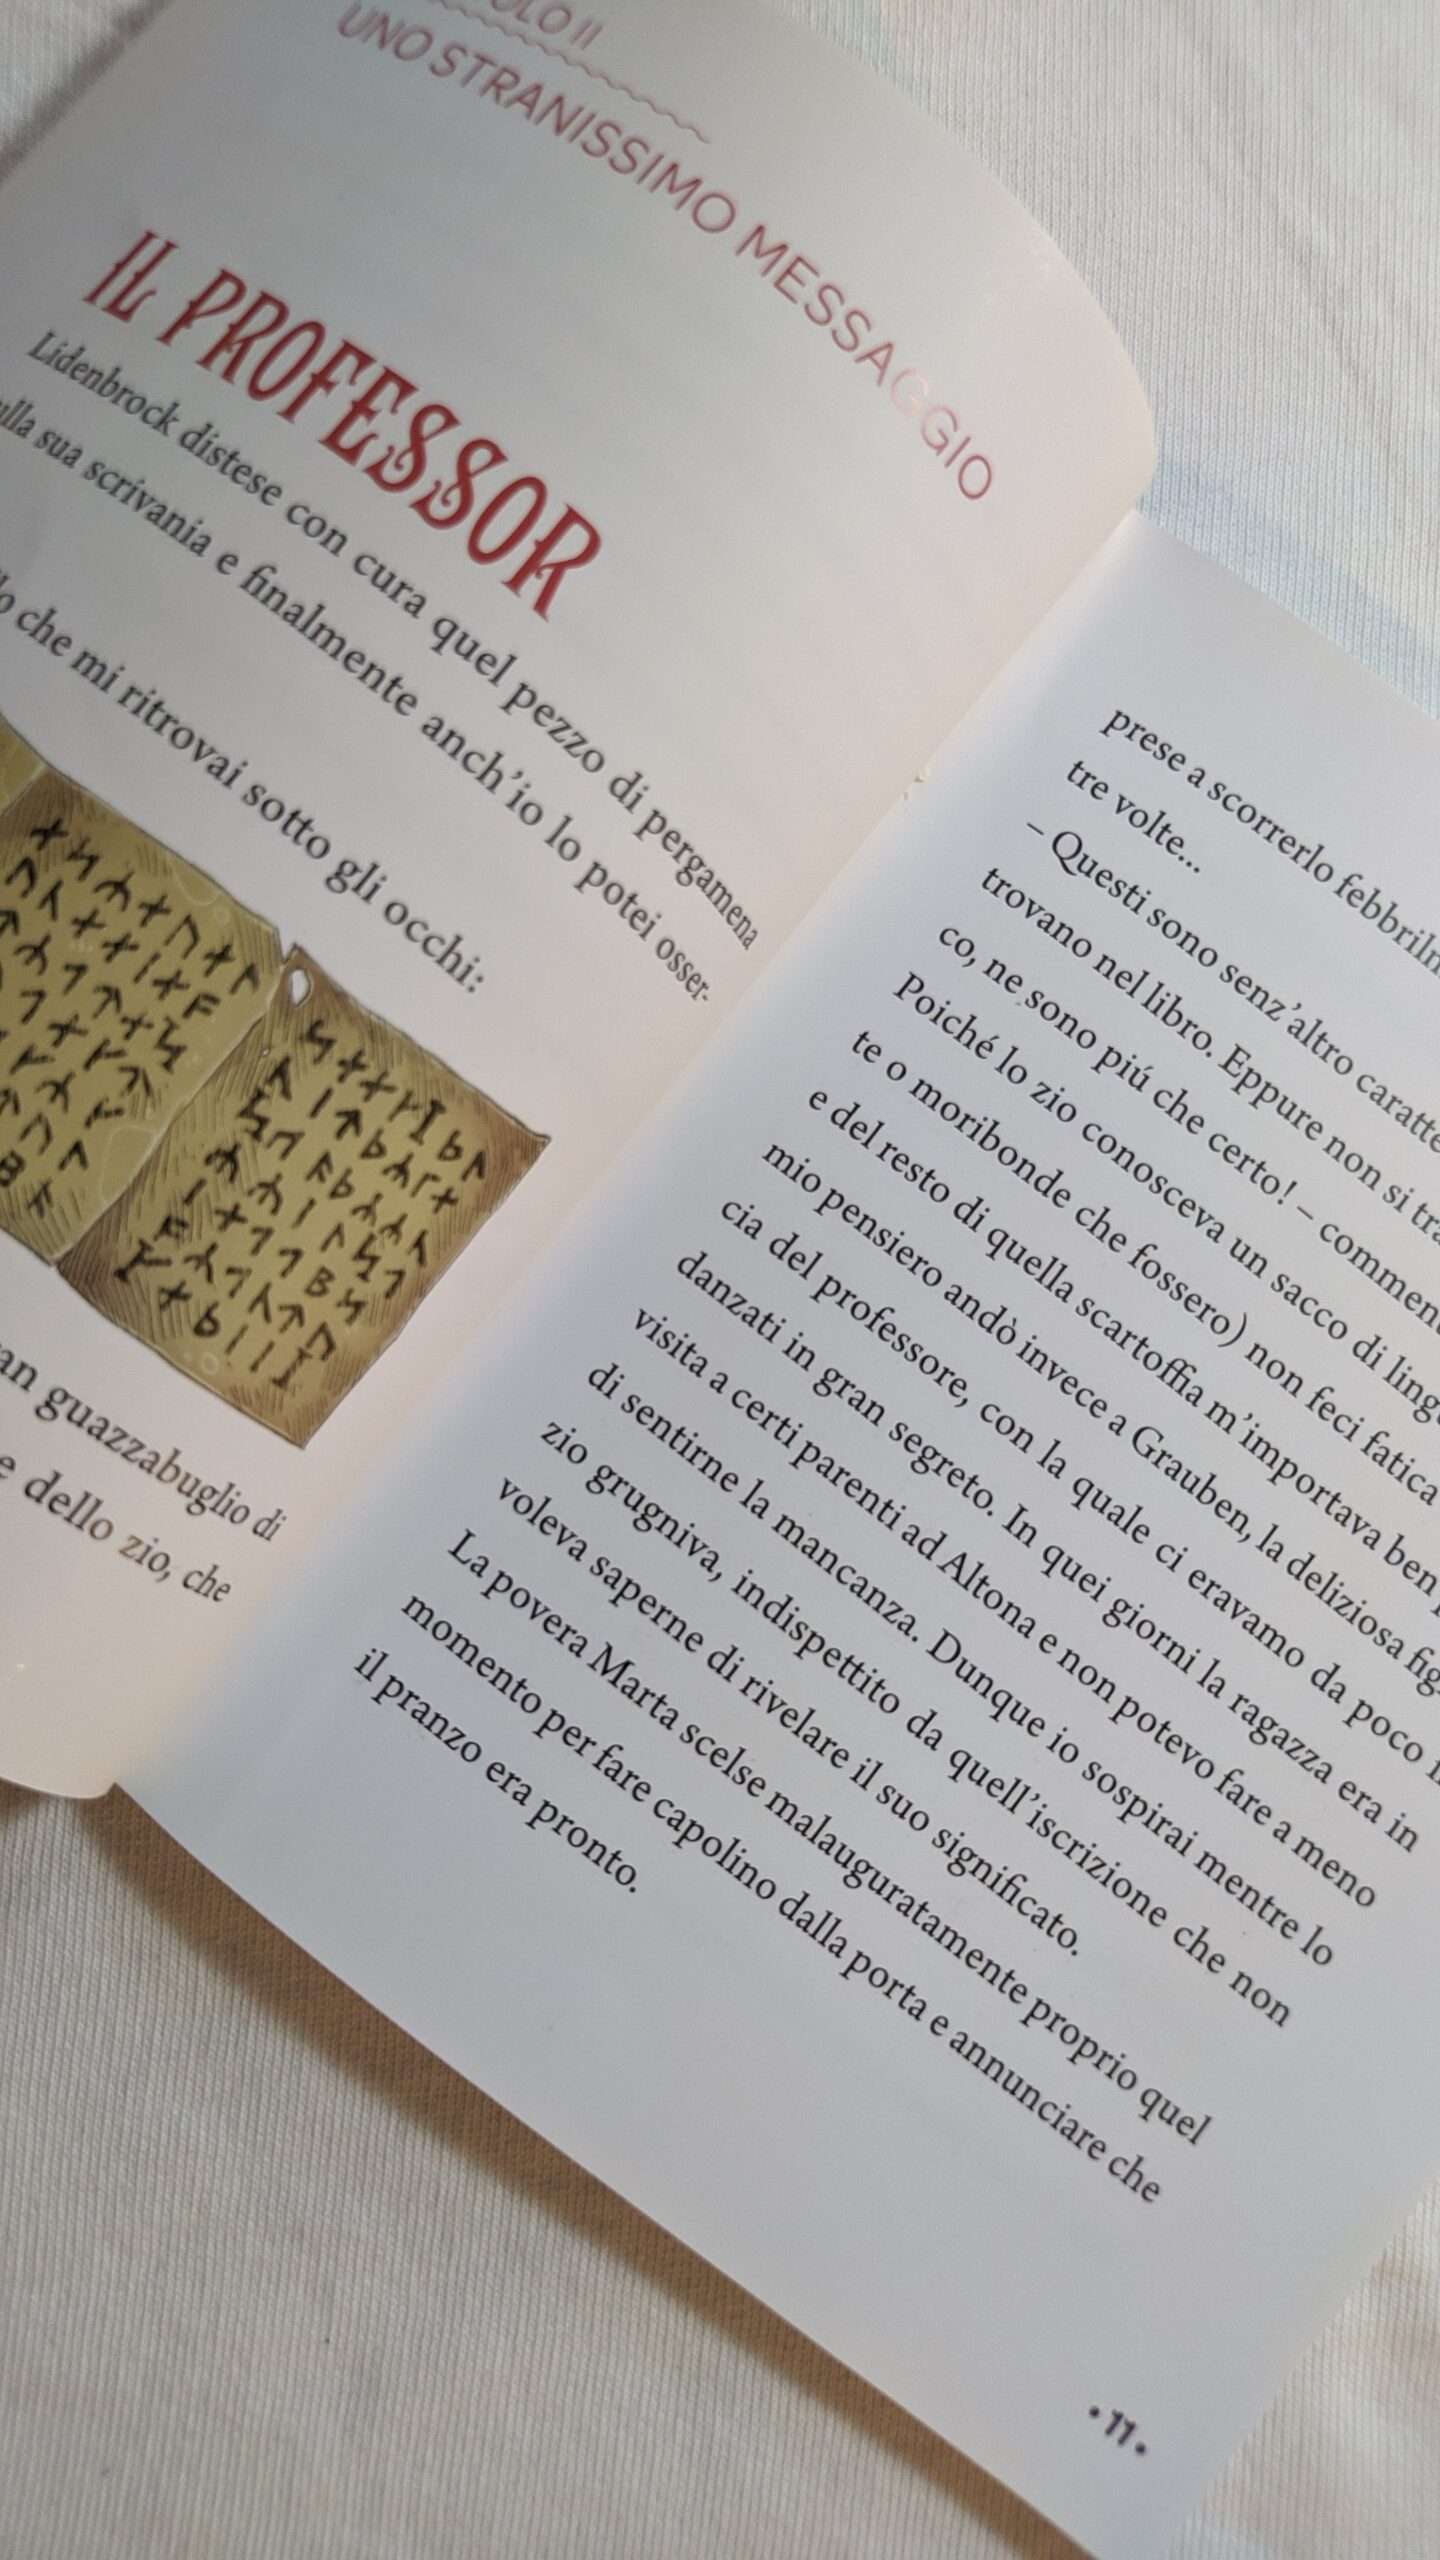 OLO II
UNO STRANISSIMO MESSAGGIO
IL PROFESSOR
Lidenbrock distese con cura quel pezzo di pergamena
ulla sua scrivania e finalmente anch'io lo potei osser-
lo che mi ritrovai sotto gli occhi:
an guazzabuglio di
e dello zio, che
prese a scorrerlo febbriln
tre volte...
– Questi sono senz'altro caratte
trovano nel libro. Eppure non si tra
co, ne sono piú che certo! – comment
Poiché lo zio conosceva un sacco di lingu
te o moribonde che fossero) non feci fatica
e del resto di quella scartoffia m'importava ben p
mio pensiero andò invece a Grauben, la deliziosa figl
cia del professore, con la quale ci eravamo da poco
danzati in gran segreto. In quei giorni la ragazza era in
visita a certi parenti ad Altona e non potevo fare a meno
di sentirne la mancanza. Dunque io sospirai mentre lo
zio grugniva, indispettito da quell'iscrizione che non
voleva saperne di rivelare il suo significato.
La povera Marta scelse malauguratamente proprio quel
momento per fare capolino dalla porta e annunciare che
il pranzo era pronto.
• 11 •